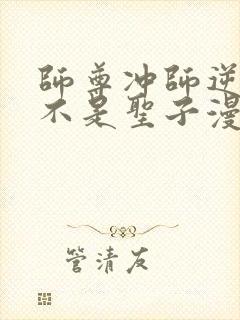 師尊冲師逆
不是聖子漫
管清友